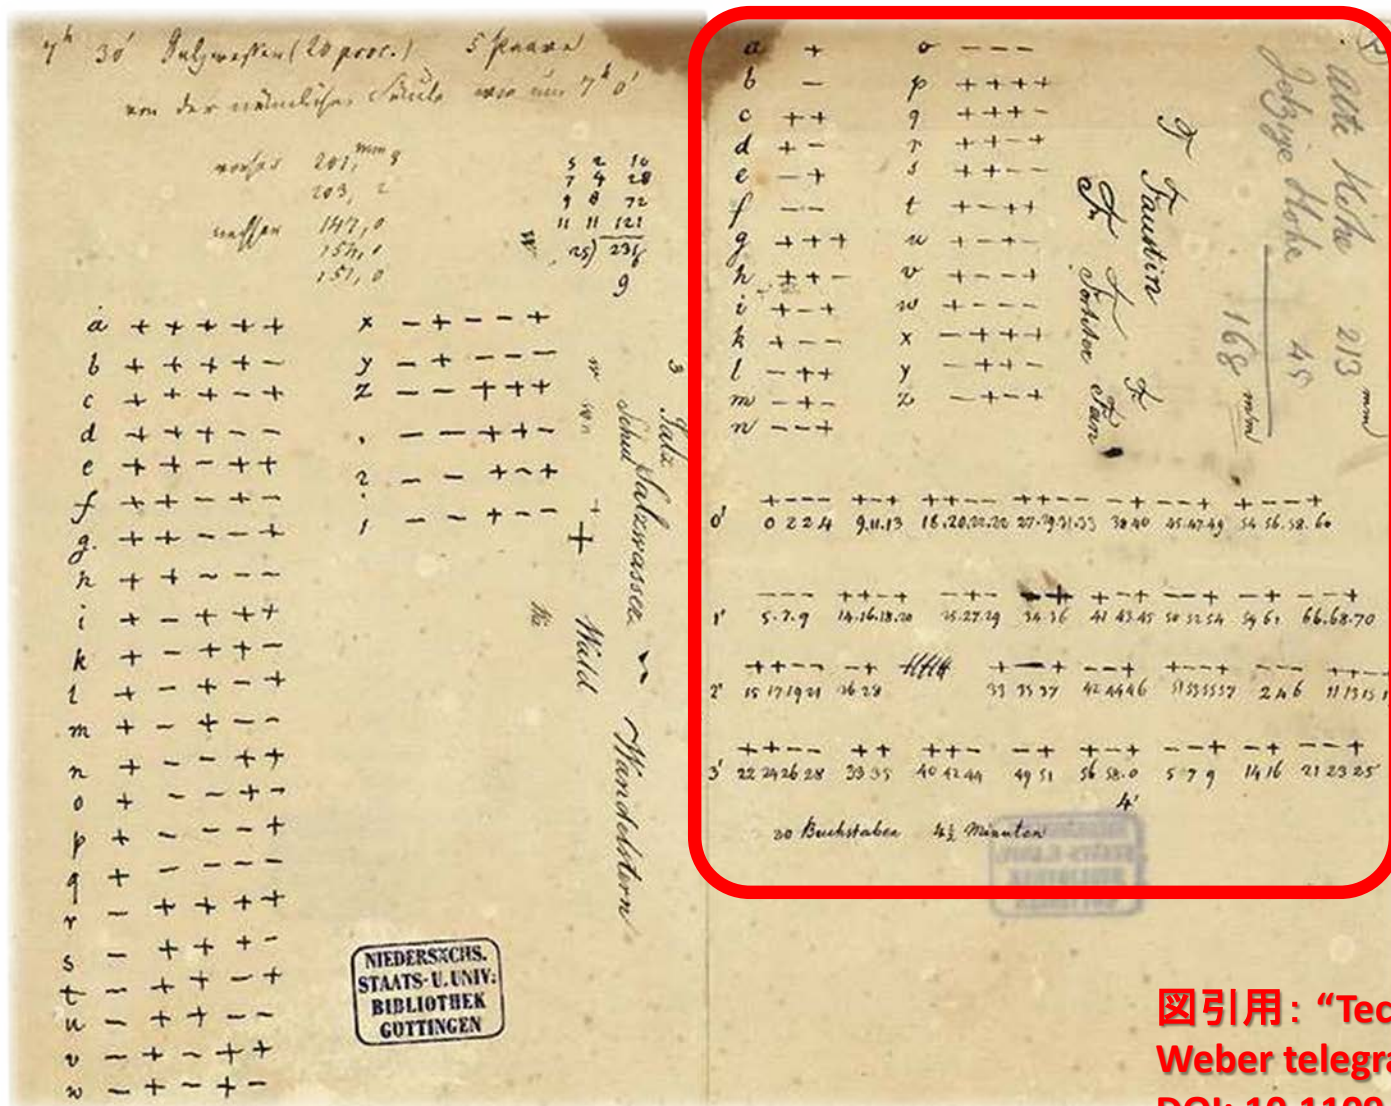 7h 30' (20 proc.) 5 Paare
von der nämlichen Säule wie um 7h 0'
vorher 201,mm 8
203, 2
147,0
154,0
151,0
5 2 10
7 4 28
9 8 72
11 11 121
25) 231
9
a + + + + +
b + + + + −
c + + + − +
d + + + − −
e + + − + +
f + + − + −
g. + + − − +
h + + − − −
i + − + + +
k + − + + −
l + − + − +
m + − + − −
n + − − + +
o + − − + −
p + − − − +
q + − − − −
r − + + + +
s − + + + −
t − + + − +
u − + + − −
v − + − + +
w − + − + −
x − + − − +
y − + − − −
z − − + + +
, − − + + −
? − − + − +
! − − + − −
3
Salz
Salzwasser
Wandelstern
Wild
NIEDERSÄCHS.
STAATS-U.UNIV:
BIBLIOTHEK
GÖTTINGEN
a +
b −
c + +
d + −
e − +
f − −
g + + +
h + + −
i + − +
k + − −
l − + +
m − + −
n − − +
o − − −
p + + + +
q + + + −
r + + − +
s + + − −
t + − + +
u + − + −
v + − − +
w + − − −
x − + + +
y − + + −
z − + − +
F Faustin
Fr F Forster
Fr Fan
Alte Höhe 213 mm
Jetzige Höhe 45
168 mm
+−−− +−+ ++−− ++−− −+ −−− +−−+
0' 0 2 2 4 9.11.13 18.20.22.22 27.29.31.33 38 40 45.47.49 54 56.58.60
−−− ++−− −−− −+ +−+ −−+ −+ −−+
1' 5.7.9 14.16.18.20 25.27.29 34.36 41 43.45 50 52 54 59 61 66.68.70
++−− −+ +−+ −−+ +−−− −−−
2' 15 17 19 21 26 28 33 35 37 42 44 46 51 53 55 57 2 4 6 11 13 15 1
++−− ++ ++− −+ +−+ −−+ −+ −−+
3' 22 24 26 28 33 35 40 42 44 49 51 56 58.0 5 7 9 14 16 21 23 25
4'
30 Buchstaben 4½ Minuten
図引用: “Tec
Weber telegra
DOI: 10.1109